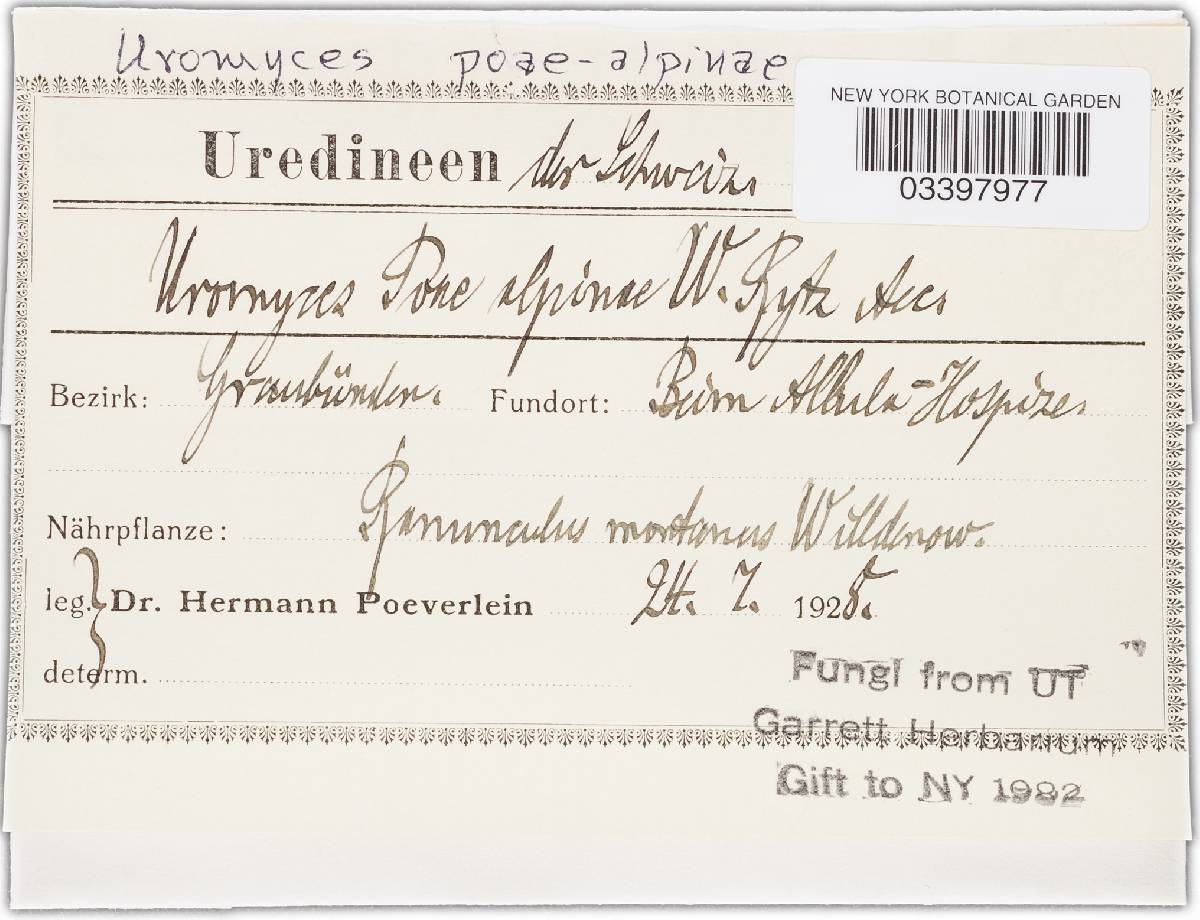 Uromyces poae-alpinae
NEW YORK BOTANICAL GARDEN
03397977
Uredineen der Schweiz.
Uromyces Poae alpinae W. Rytz Aec.
Bezirk: Graubünden. Fundort: Beim Albula-Hospize.
Nährpflanze: Ranunculus montanus Willdenow.
leg. Dr. Hermann Poeverlein 24. 7. 1925.
determ.
Fungi from UT
Garrett Herbarium
Gift to NY 1982